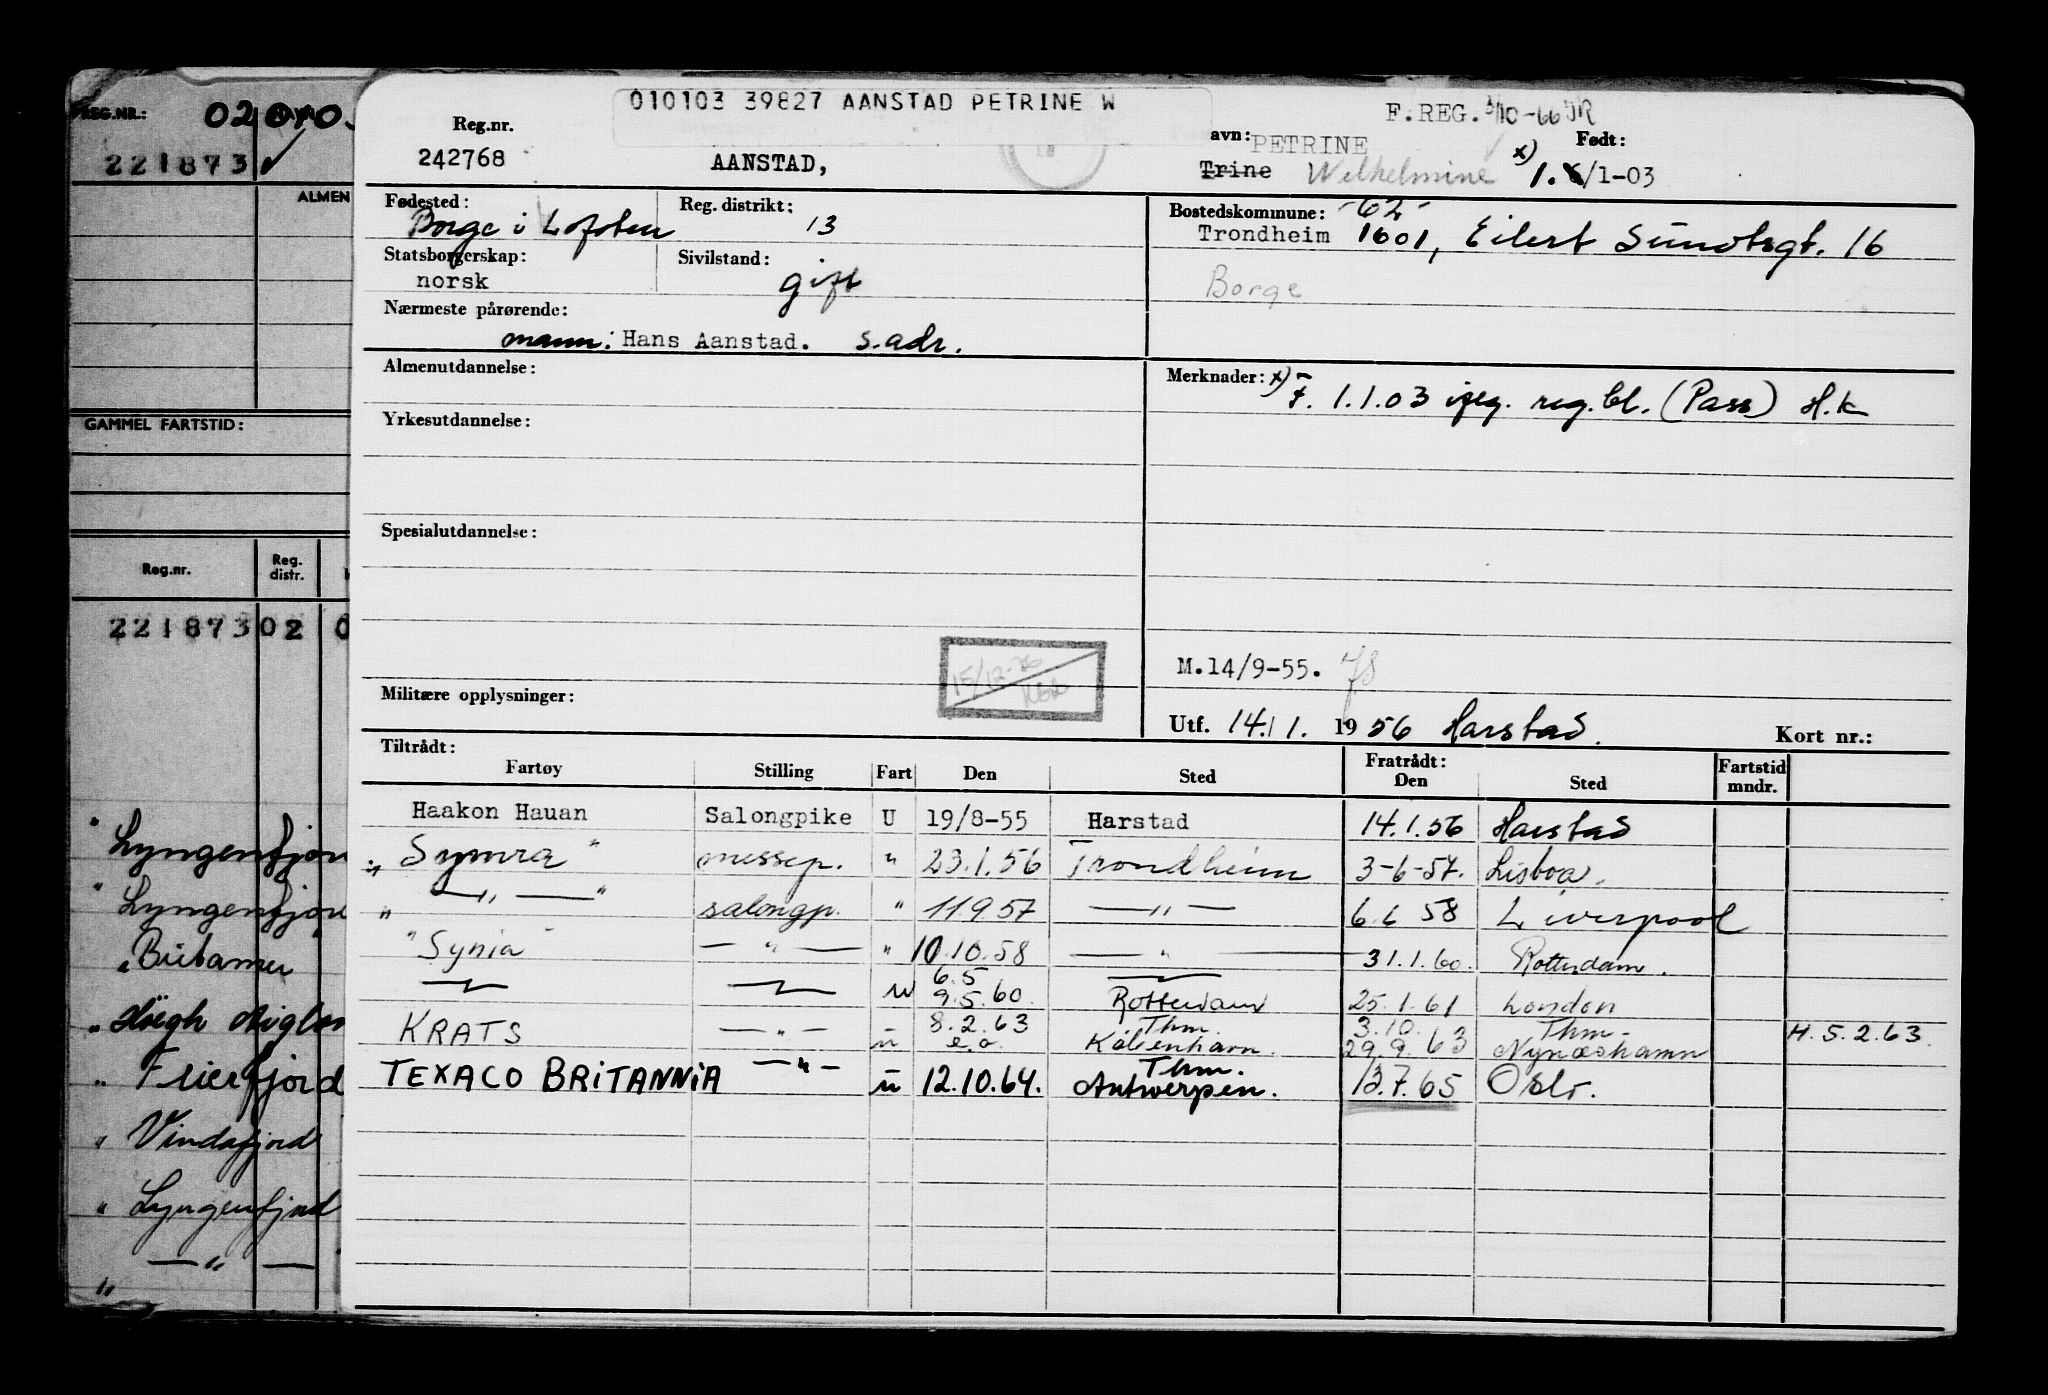 010103 39827 AANSTAD PETRINE W
F.REG. 3/10-66 JR
Reg.nr.
242768
AANSTAD,
avn: PETRINE
Trine Wilhelmine
Født:
x) 1. /1-03
Fødested:
Borge i Lofoten
Reg. distrikt:
13
Bostedskommune: -62-
Trondheim 1601, Eilert Sundtsgt. 16
Borge
Statsborgerskap:
norsk
Sivilstand:
gift
Nærmeste pårørende:
mann: Hans Aanstad. s.adr.
Almenutdannelse:
Merknader: x) F. 1.1.03 ifølg. reg.bl. (Pass) H.K
Yrkesutdannelse:
Spesialutdannelse:
15/12-76
M.14/9-55.
Militære opplysninger:
Utf. 14/1. 1956 Harstad.
Kort nr.:
Tiltrådt:
Fartøy Stilling Fart Den Sted
Fratrådt:
Den Sted
Fartstid
mndr.
Haakon Hauan Salongpike U 19/8-55 Harstad 14.1.56 Harstad
" Symra " messep. " 23.1.56 Trondheim 3-6-57. Lisboa.
" —"— " salongp. " 11 9 57 —"— 6.6 58 Liverpool
" Synia " —"— " 10.10.58 —"— 31.1.60. Rotterdam.
6.5
9.5.60. Rotterdam 25.1.61 London
KRATS —"— u 8.2.63 Thm. 3.10. Thm. H. 5.2.63.
e.o. København. 29.9.63 Nynäshamn
TEXACO BRITANNIA —"— u 12.10.64. Thm.
Antwerpen. 13.7.65 Oslo.
REG.NR.:
221873 ✓
ALMEN
GAMMEL FARTSTID:
Reg.nr.
Reg.
distr.
221873 02 0
" Lyngenfjor
" Lyngenfjor
" Britamer
" Höegh
" Frierfjord
" Vindafjord
" Lyngenfjord
—"—
"